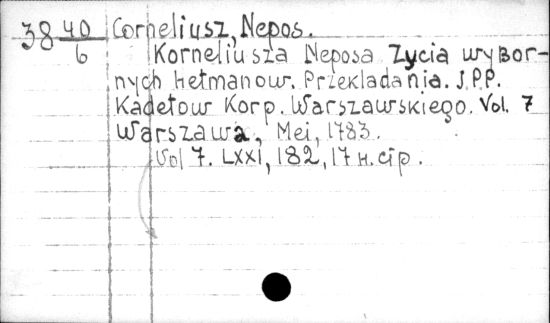 38 40/6 Corneliusz, Nepos.
Korneliusza Neposa Zycia wybor-
nych hetmanow. Przekladania. J.P.P.
Kadetow Korp. Warszawskiego. Vol. 7
Warszawa, Mei, 1783.
Vol 7. LXXI, 182, 17 н. cip.